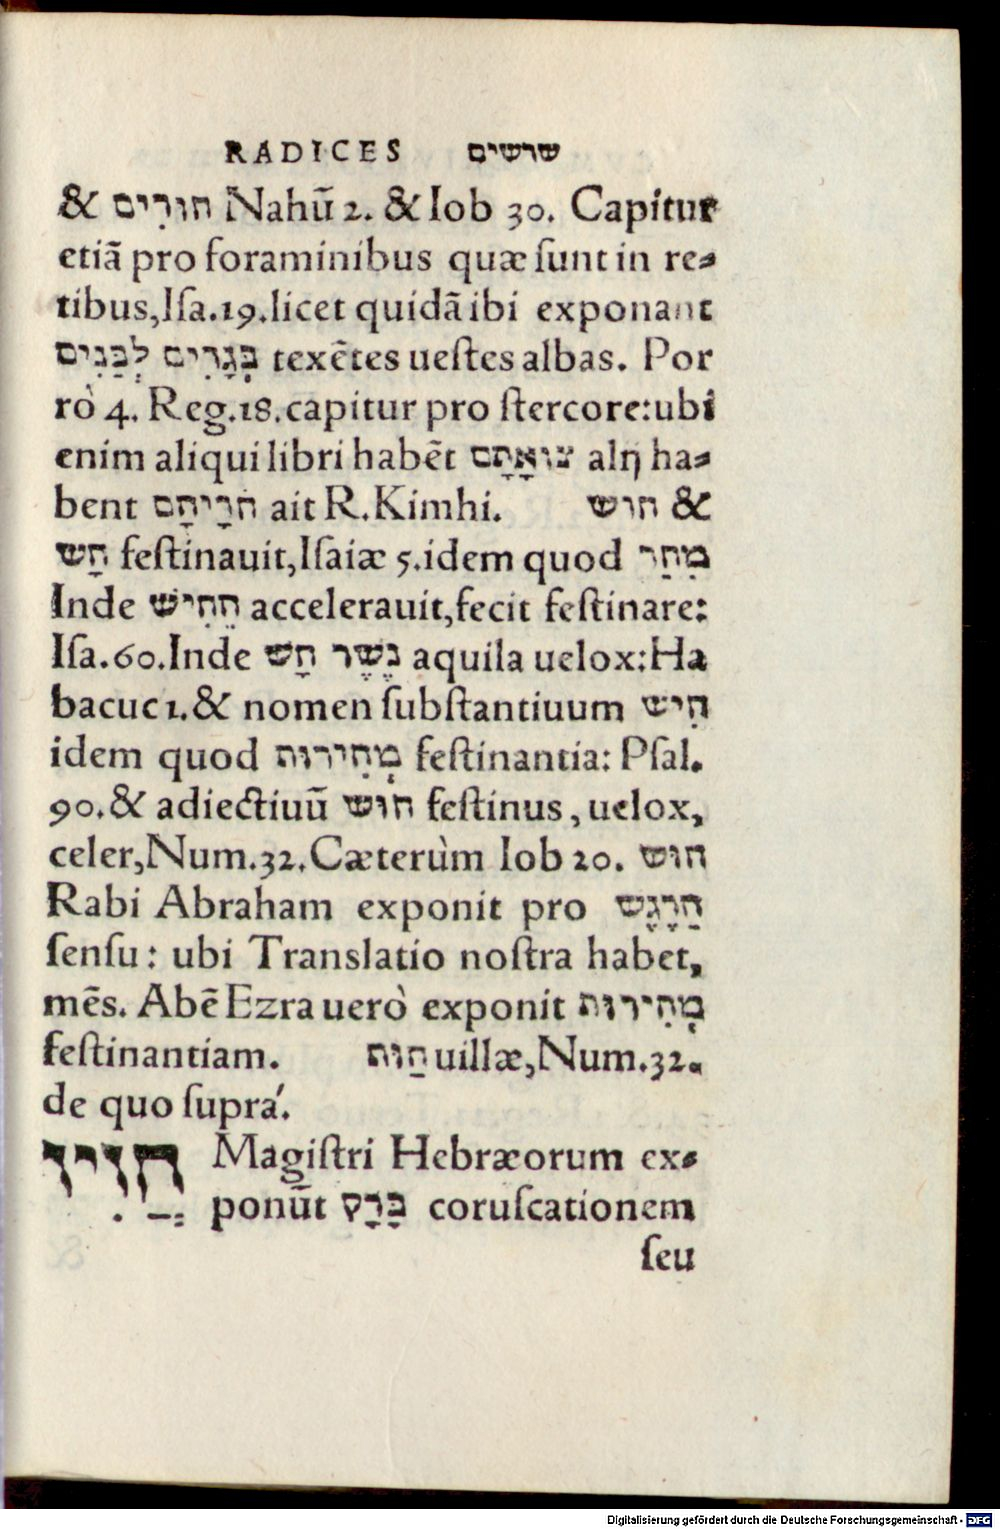 RADICES שרשים
& חורִים Nahū 2. & Iob 30. Capitur
etiā pro foraminibus quæ ſunt in re⸗
tibus, Iſa.19. licet quidā ibi exponant
בְּגָדִים לְבָנִים texētes ueſtes albas. Por
rò 4. Reg.18. capitur pro ſtercore: ubi
enim aliqui libri habēt צוֹאָתָם alij ha⸗
bent חֹרָיהָם ait R. Kimhi. חוש &
חָש feſtinauit, Iſaiæ 5. idem quod מִהַר
Inde הֵחִישׁ accelerauit, fecit feſtinare:
Iſa.60. Inde נֶשֶׁר חָשׁ aquila uelox: Ha
bacuc 1. & nomen ſubſtantiuum חִיש
idem quod מְהִירוּת feſtinantia: Pſal.
90. & adiectiuū חוּש feſtinus, uelox,
celer, Num.32. Cæterùm Iob 20. חוּש
Rabi Abraham exponit pro הַרֶגֶש
ſenſu: ubi Translatio noſtra habet,
mēs. Abē Ezra uerò exponit מְהִירוּת
feſtinantiam. חַוּת uillæ, Num.32.
de quo ſuprá.
חֲזִיז Magiſtri Hebræorum ex⸗
ponūt בָּרָק coruſcationem
ſeu
Digitalisierung gefördert durch die Deutsche Forschungsgemeinschaft - DFG